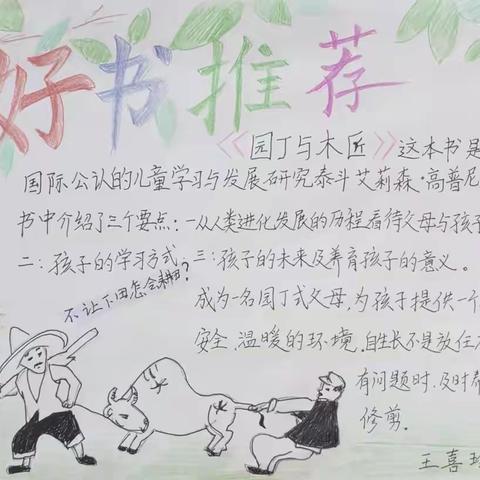 好书推荐
《园丁与木匠》这本书是
国际公认的儿童学习与发展研究泰斗艾莉森·高普尼
书中介绍了三个要点：一从人类进化发展的历程看待父母与孩子
二：孩子的学习方式。三：孩子的未来及养育孩子的意义。
不让下田怎会耕田？
成为一名园丁式父母，为孩子提供一个
安全、温暖的环境，自生长不是放任不
有问题时，及时帮
修剪。
王喜珍